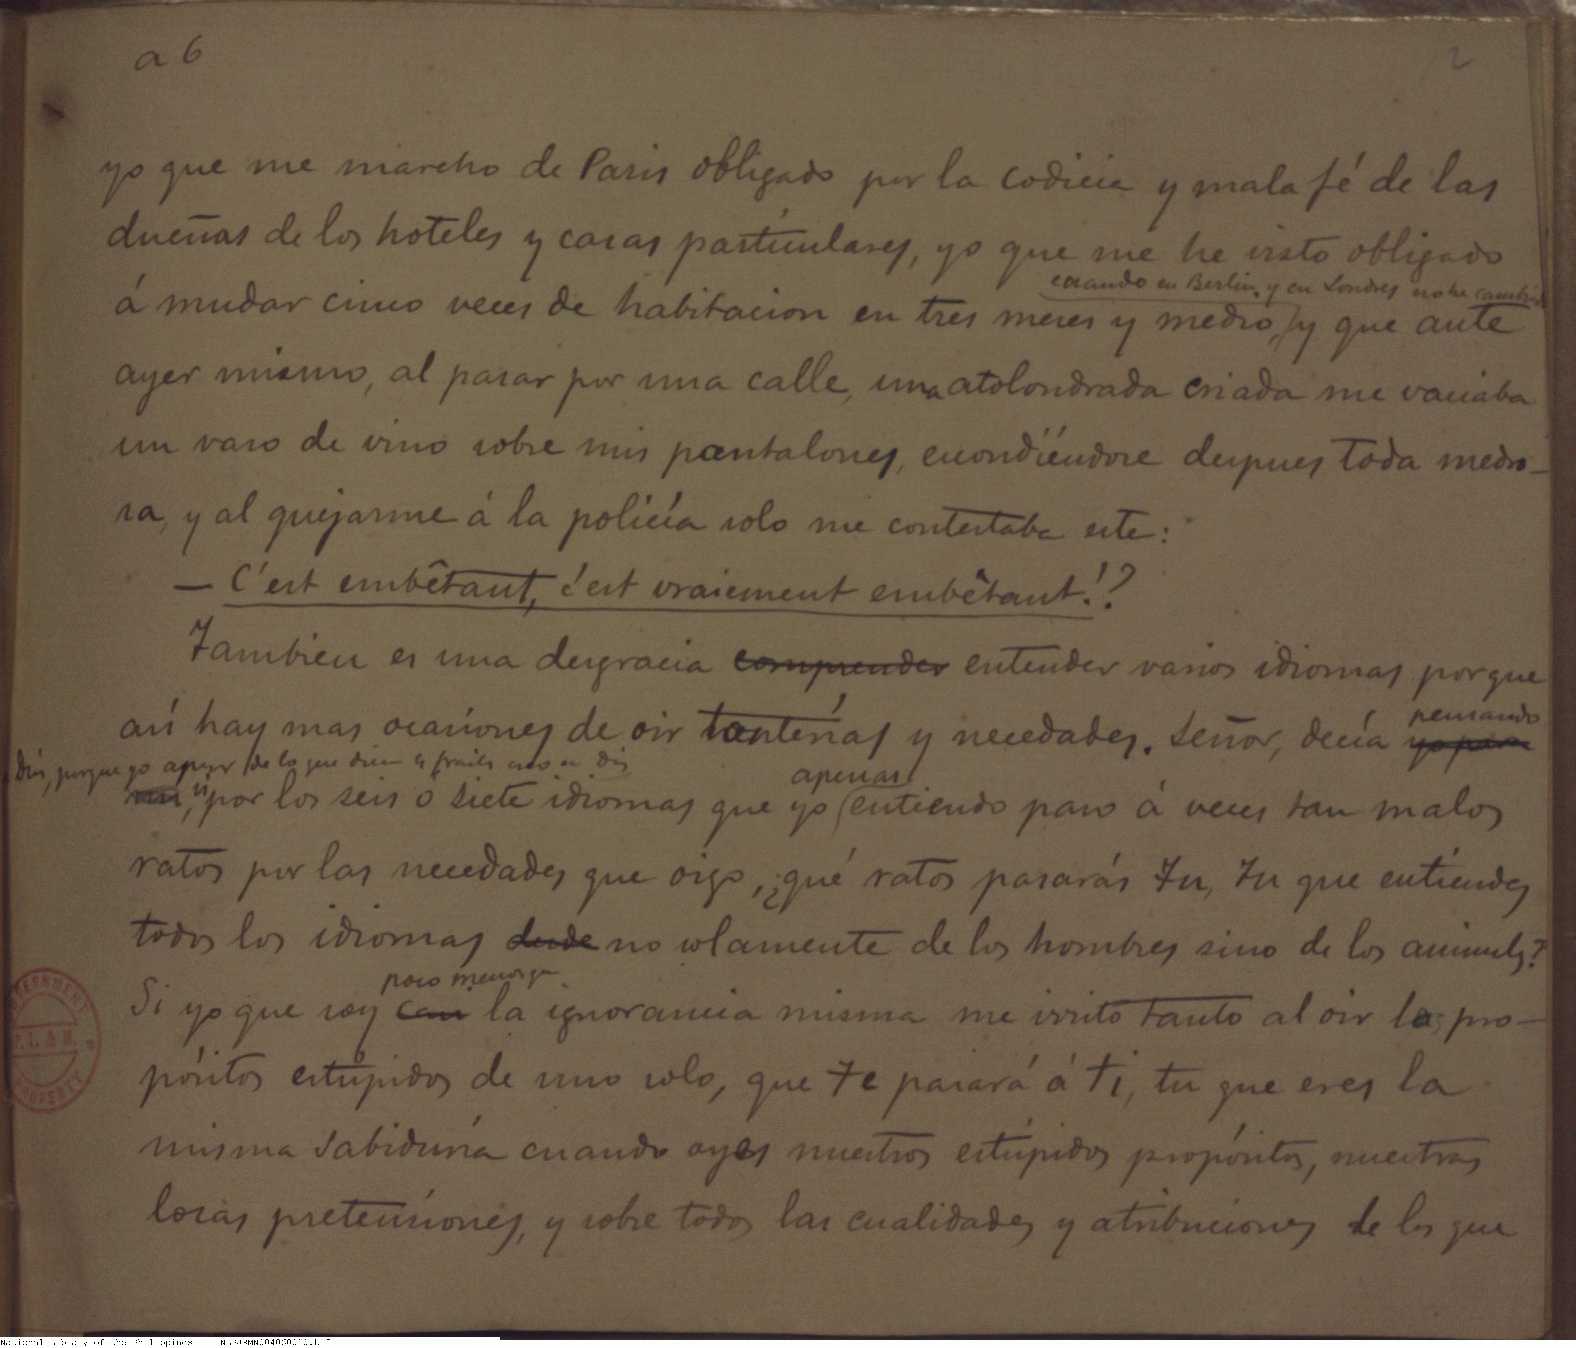 a 6
2
yo que me marcho de Paris obligado por la codicia y mala fé de las
dueñas de los hoteles y casas particulares, yo que me he visto obligado
cuando en Berlin, y en Londres no he cambiado
á mudar cinco veces de habitacion en tres meses y medio, y que ante
ayer mismo, al pasar por una calle, una atolondrada criada me vaciaba
un vaso de vino sobre mis pantalones, escondiéndose despues toda medro-
sa, y al quejarme á la policía solo me contestaba este:
— C'est embêtant, c'est vraiement embêtant!?
Tambien es una desgracia comprender entender varios idiomas porque
así hay mas ocasiones de oir tonterías y necedades. Señor, decía yo para
pensando
Dios, porque yo apesar de lo que dicen los frailes creo en Dios
apenas
mí, si por los seis ó siete idiomas que yo entiendo paso á veces tan malos
ratos por las necedades que oigo, ¿qué ratos pasarás Tu, Tu que entiendes
todos los idiomas desde no solamente de los hombres sino de los animales?
poco menos que
Si yo que soy casi la ignorancia misma me irrito tanto al oir los pro-
pósitos estúpidos de uno solo, que te pasará á ti, tu que eres la
misma Sabiduría cuando oyes nuestros estúpidos propósitos, nuestras
locas pretensiones, y sobre todos las cualidades y atribuciones de los que
GOVERNMENT
P.L. & M.
PROPERTY
National Library of the Philippines